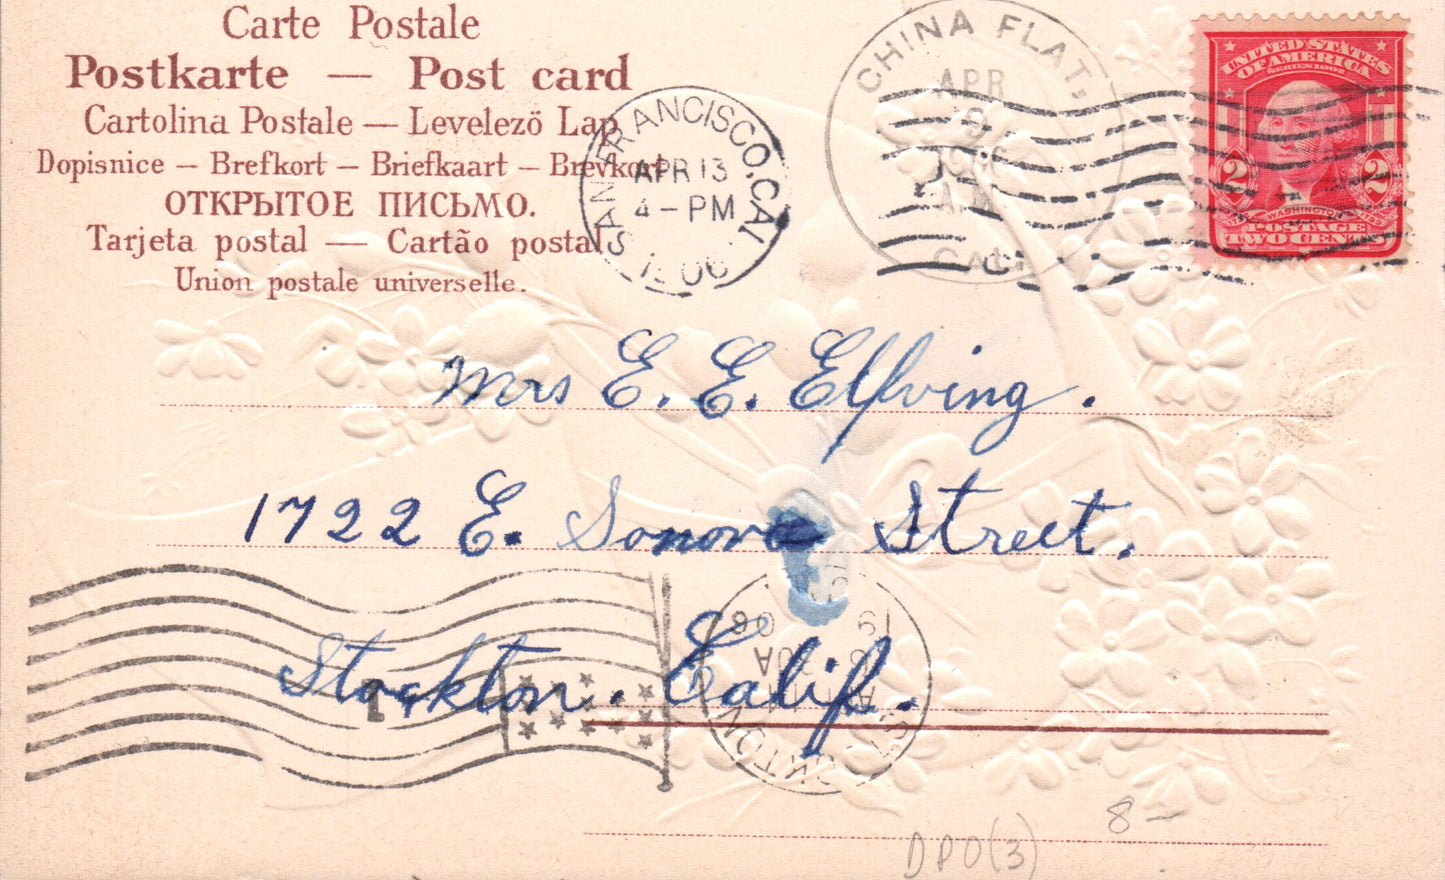 Carte Postale
Postkarte — Post card
Cartolina Postale — Levelező Lap
Dopisnice — Brefkort — Briefkaart — Brevkort
ОТКРЫТОЕ ПИСЬМО.
Tarjeta postal — Cartão postal
Union postale universelle.
SAN FRANCISCO, CAL.
APR 13
4 - PM
1906
CHINA FLAT,
APR
9
1906
CAL.
UNITED STATES
OF AMERICA
SERIES 1902
2 2
WASHINGTON
POSTAGE
TWO CENTS
Mrs E. E. Elfving.
1722 E. Sonora Street.
Stockton. Calif.
1
STOCKTON
19 06
8 —
DPO(3)